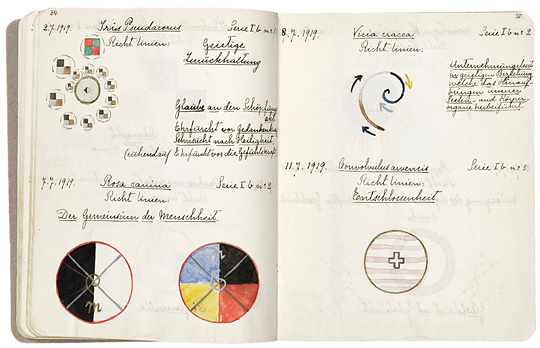 34.
2.7.1919. Iris Pseudacorus Serie I b. nr 1
Richt linien:
Geistige
Zurückhaltung
Glaube an den Schöpfung
Ehrfurcht vor Gedanken
Sehnsucht nach Heiligkeit,
Ehrfurcht vor die Gefühlskraft
7.7.1919. Rosa canina Serie I b. nr 2
Richt linien:
Der Gemeinsinn der Menschheit.
35.
8.7.1919. Vicia cracca Serie I b. nr 2
Richt linien:
Unternehmungslust
in geistigen Beziehung
welche das Hinauf-
bringen unserer
Seelen- und Körper-
organe herbeiführt.
11.7.1919. Convolvulus arvensis Serie I b. nr 3
Richt linien:
Entschlossenheit